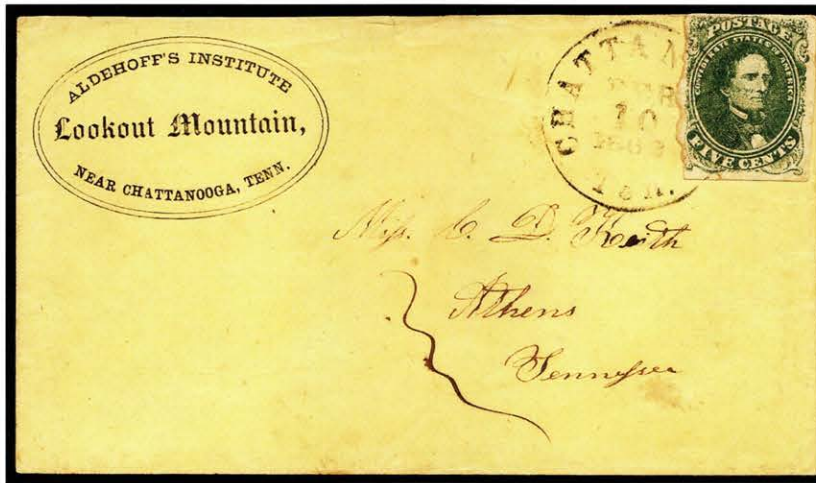 ALDEHOFF'S INSTITUTE
Lookout Mountain,
NEAR CHATTANOOGA, TENN.
CHATTAN
FEB
10
1862
Ten.
POSTAGE
CONFEDERATE STATES OF AMERICA
FIVE CENTS
Miss. C. D. Keith
Athens
Tennessee